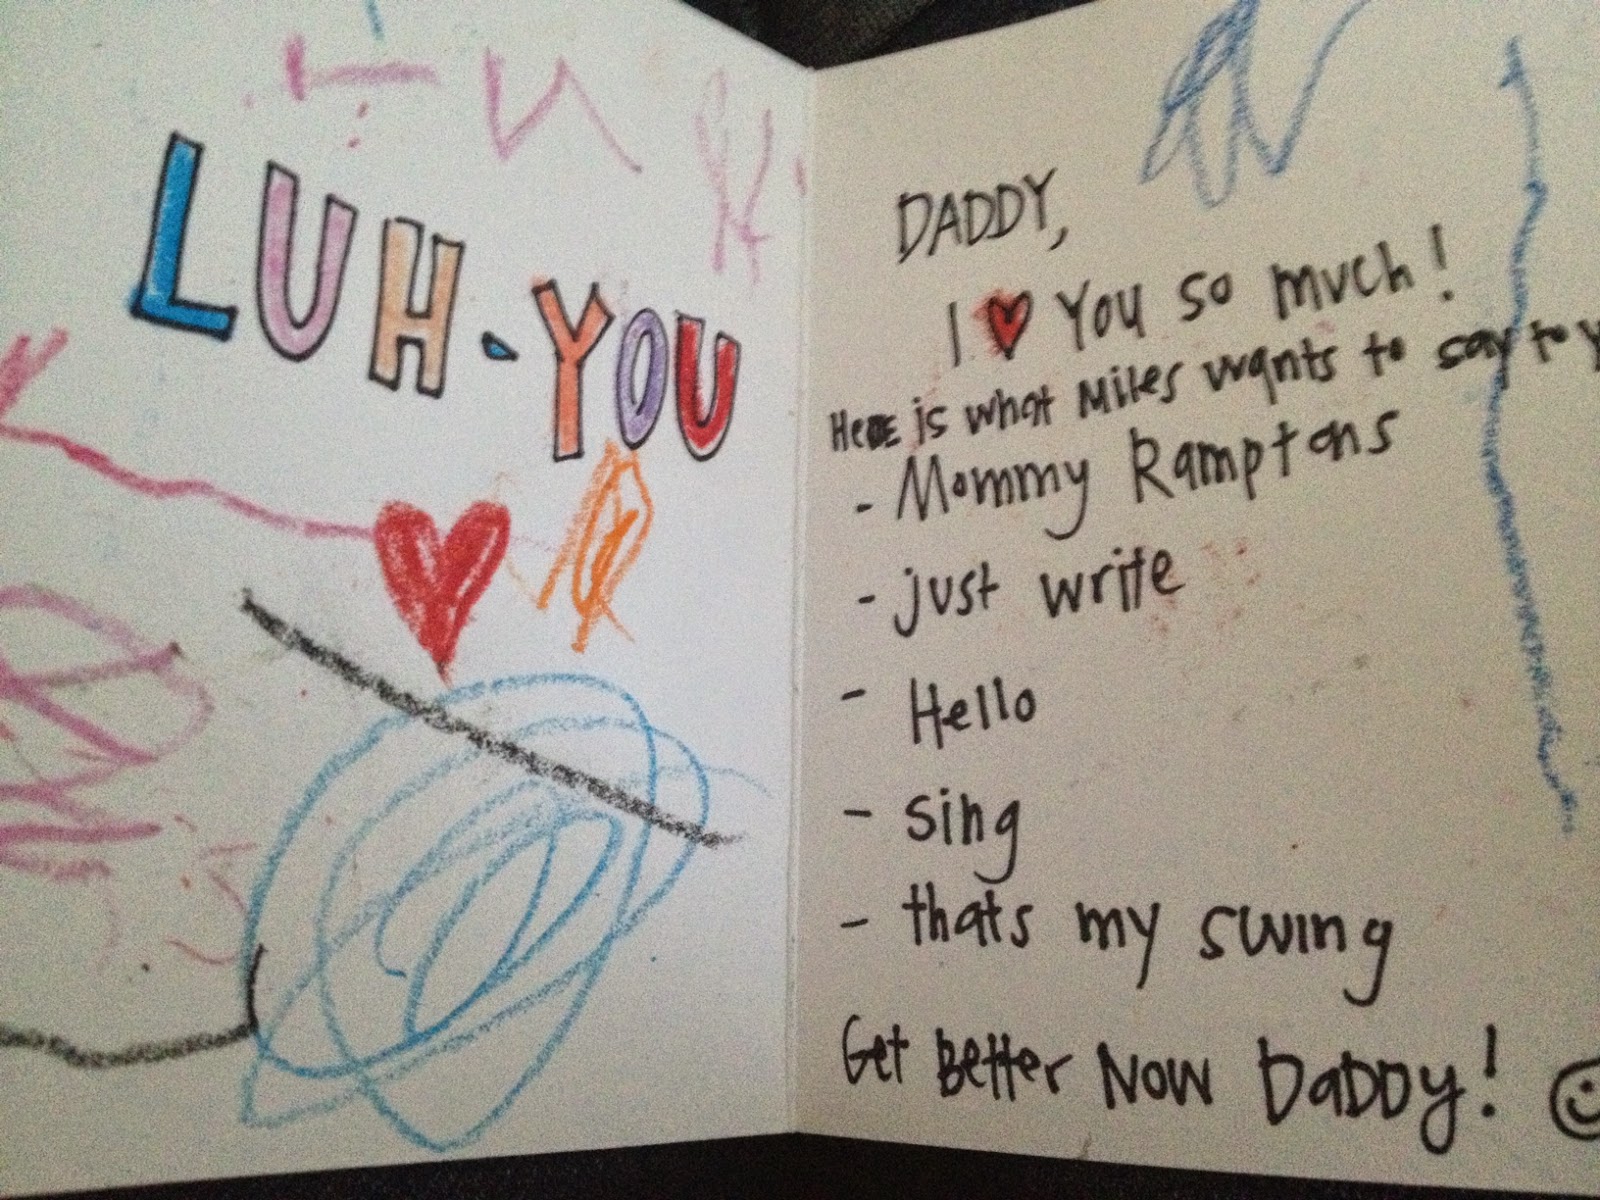 LUH-YOU
DADDY,
I ♥ You so much!
Here is what Miles wants to say to y
- Mommy Ramptons
- just write
- Hello
- sing
- thats my swing
Get Better Now Daddy!